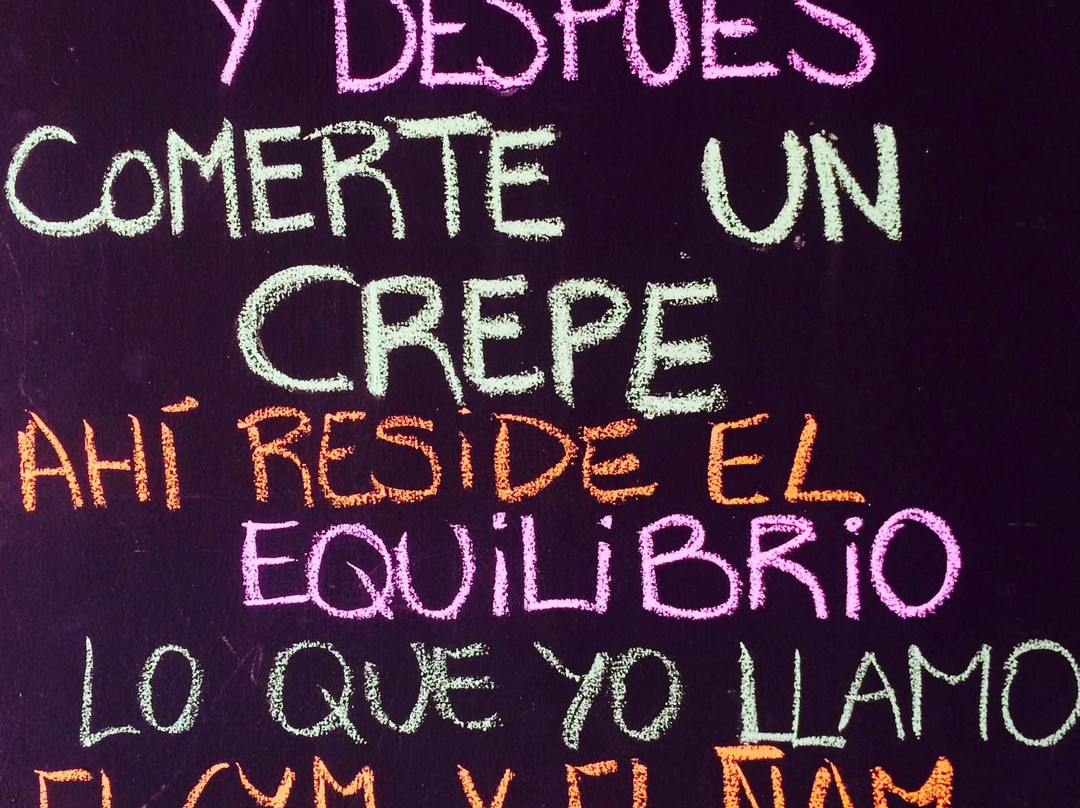 Y DESPUES
COMERTE UN
CREPE
AHÍ RESIDE EL
EQUILIBRIO
LO QUE YO LLAMO
EL GYM Y EL ÑAM